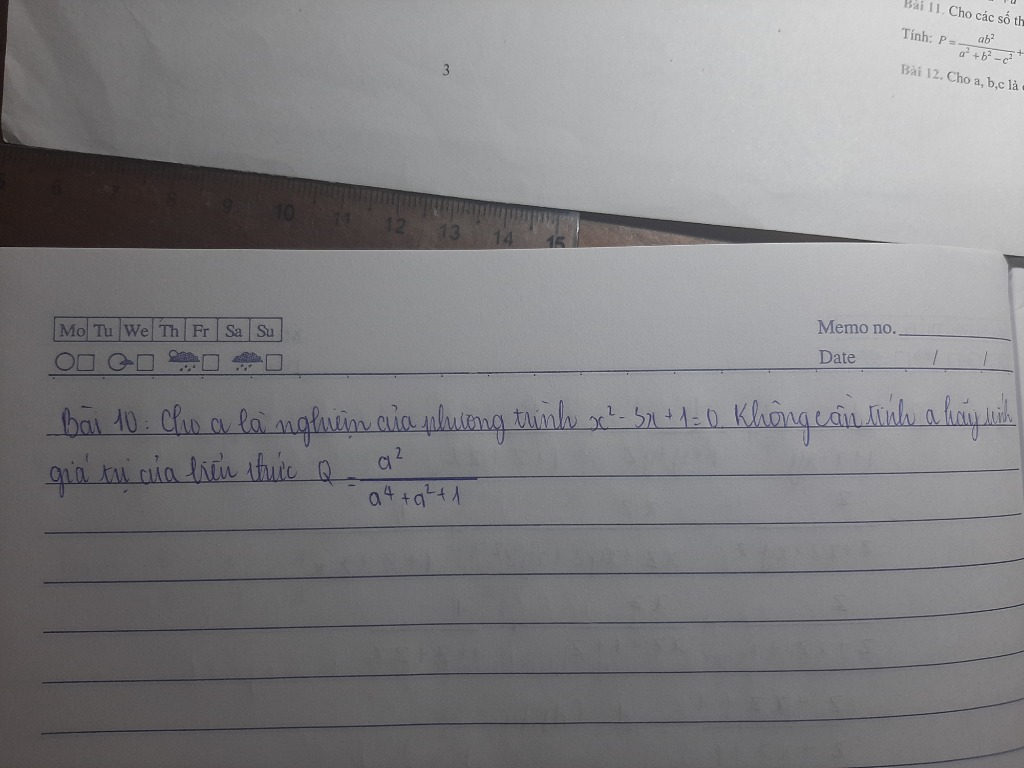 Bài 11. Cho các số th
Tính: P = ab² / a² + b² − c² +
Bài 12. Cho a, b,c là
3
6 7 8 9 10 11 12 13 14 15
Mo Tu We Th Fr Sa Su
Memo no.
Date / /
Bài 10: Cho a là nghiệm của phương trình x² - 3x + 1 = 0. Không cần tính a hãy tính
giá trị của biểu thức Q = a² / a⁴ + a² + 1